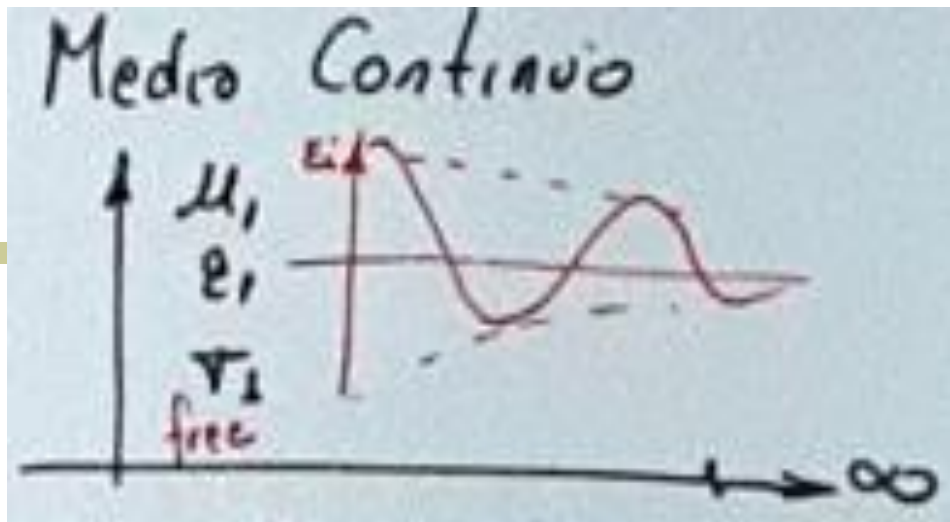 Medio Continuo
Ei
μ₁
ε₁
σ₁
free
∞